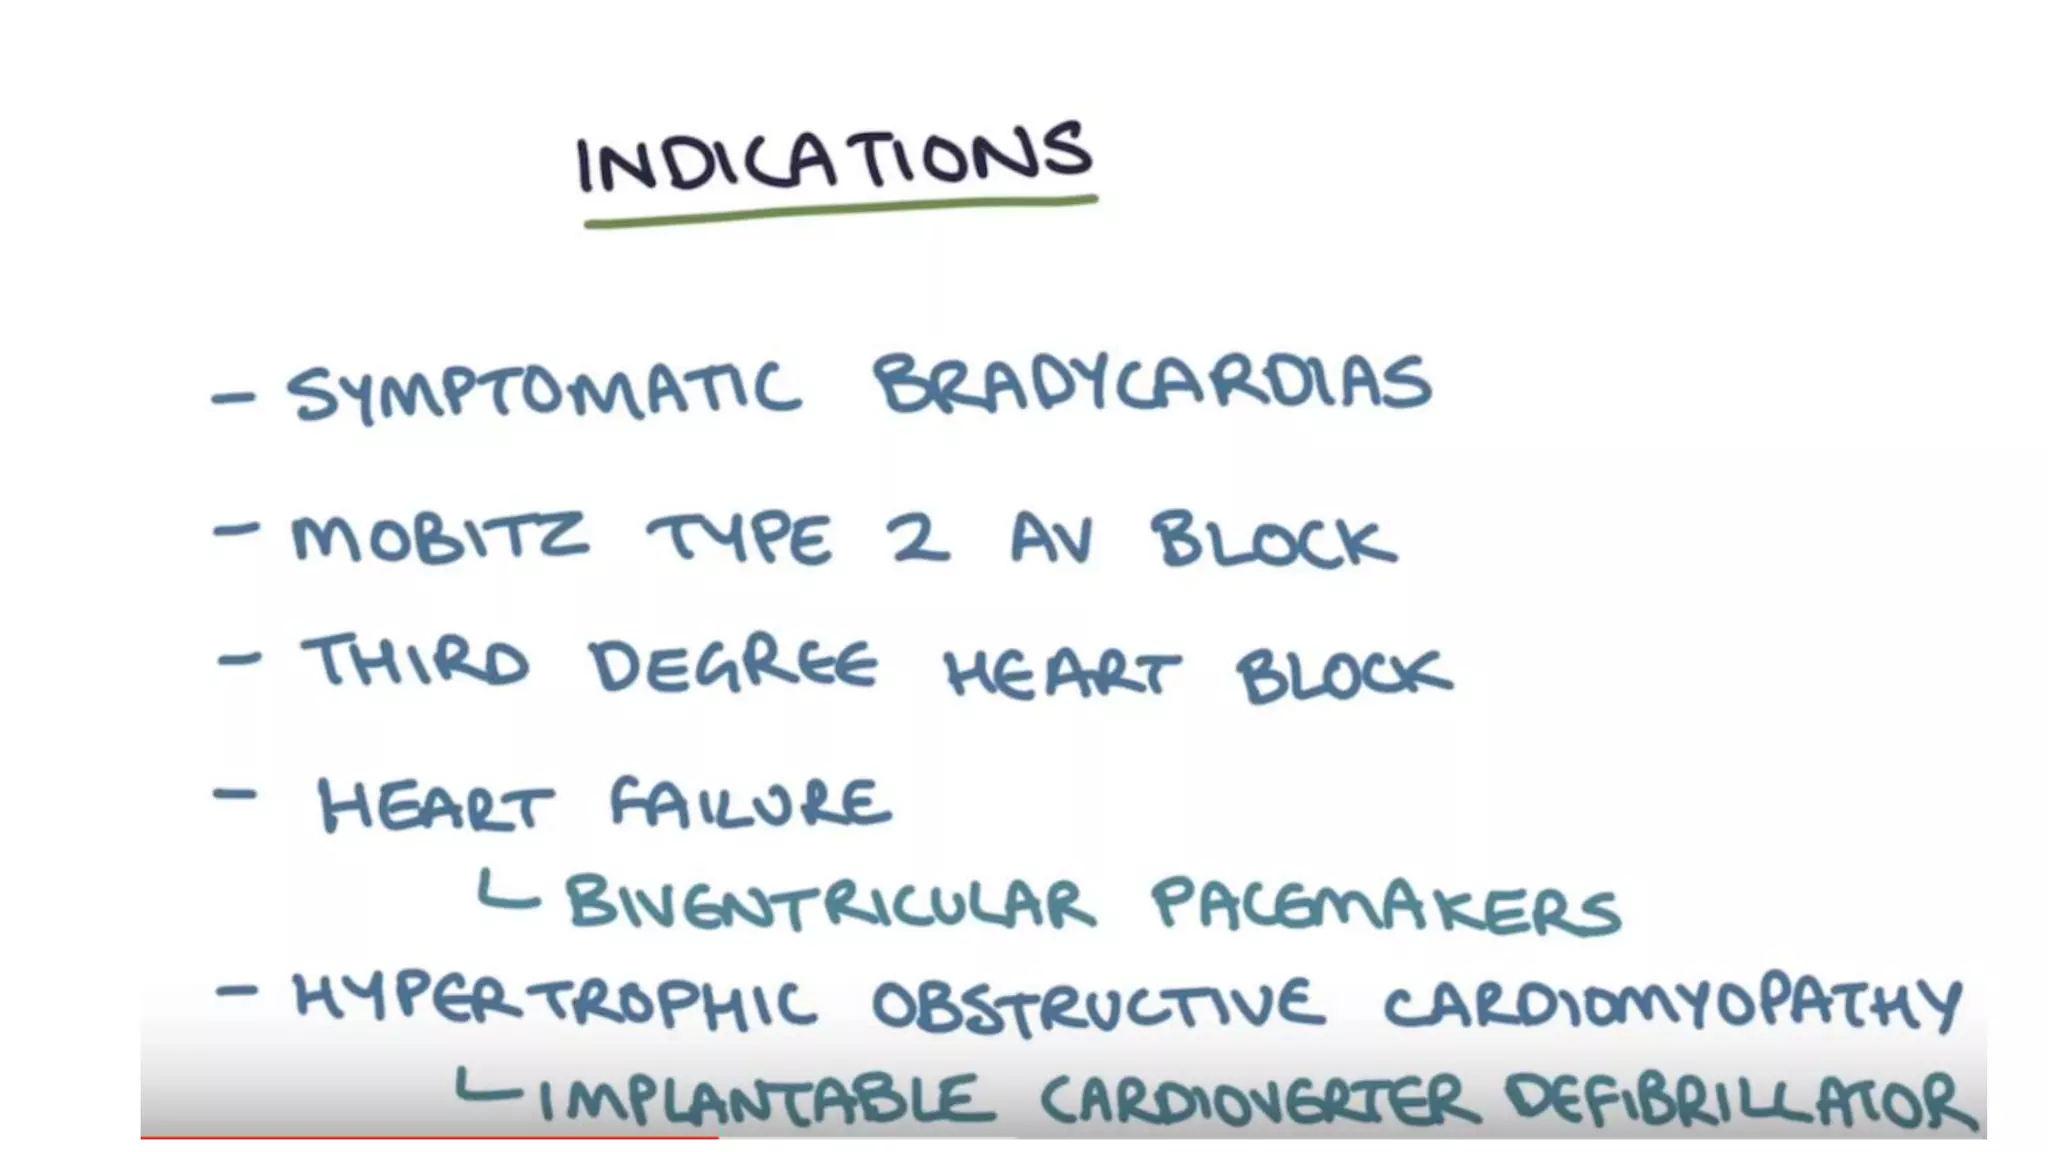 INDICATIONS
- SYMPTOMATIC BRADYCARDIAS
- MOBITZ TYPE 2 AV BLOCK
- THIRD DEGREE HEART BLOCK
- HEART FAILURE
BIVENTRICULAR PACEMAKERS
- HYPERTROPHIC OBSTRUCTIVE CARDIOMYOPATHY
IMPLANTABLE CARDIOVERTER DEFIBRILLATOR